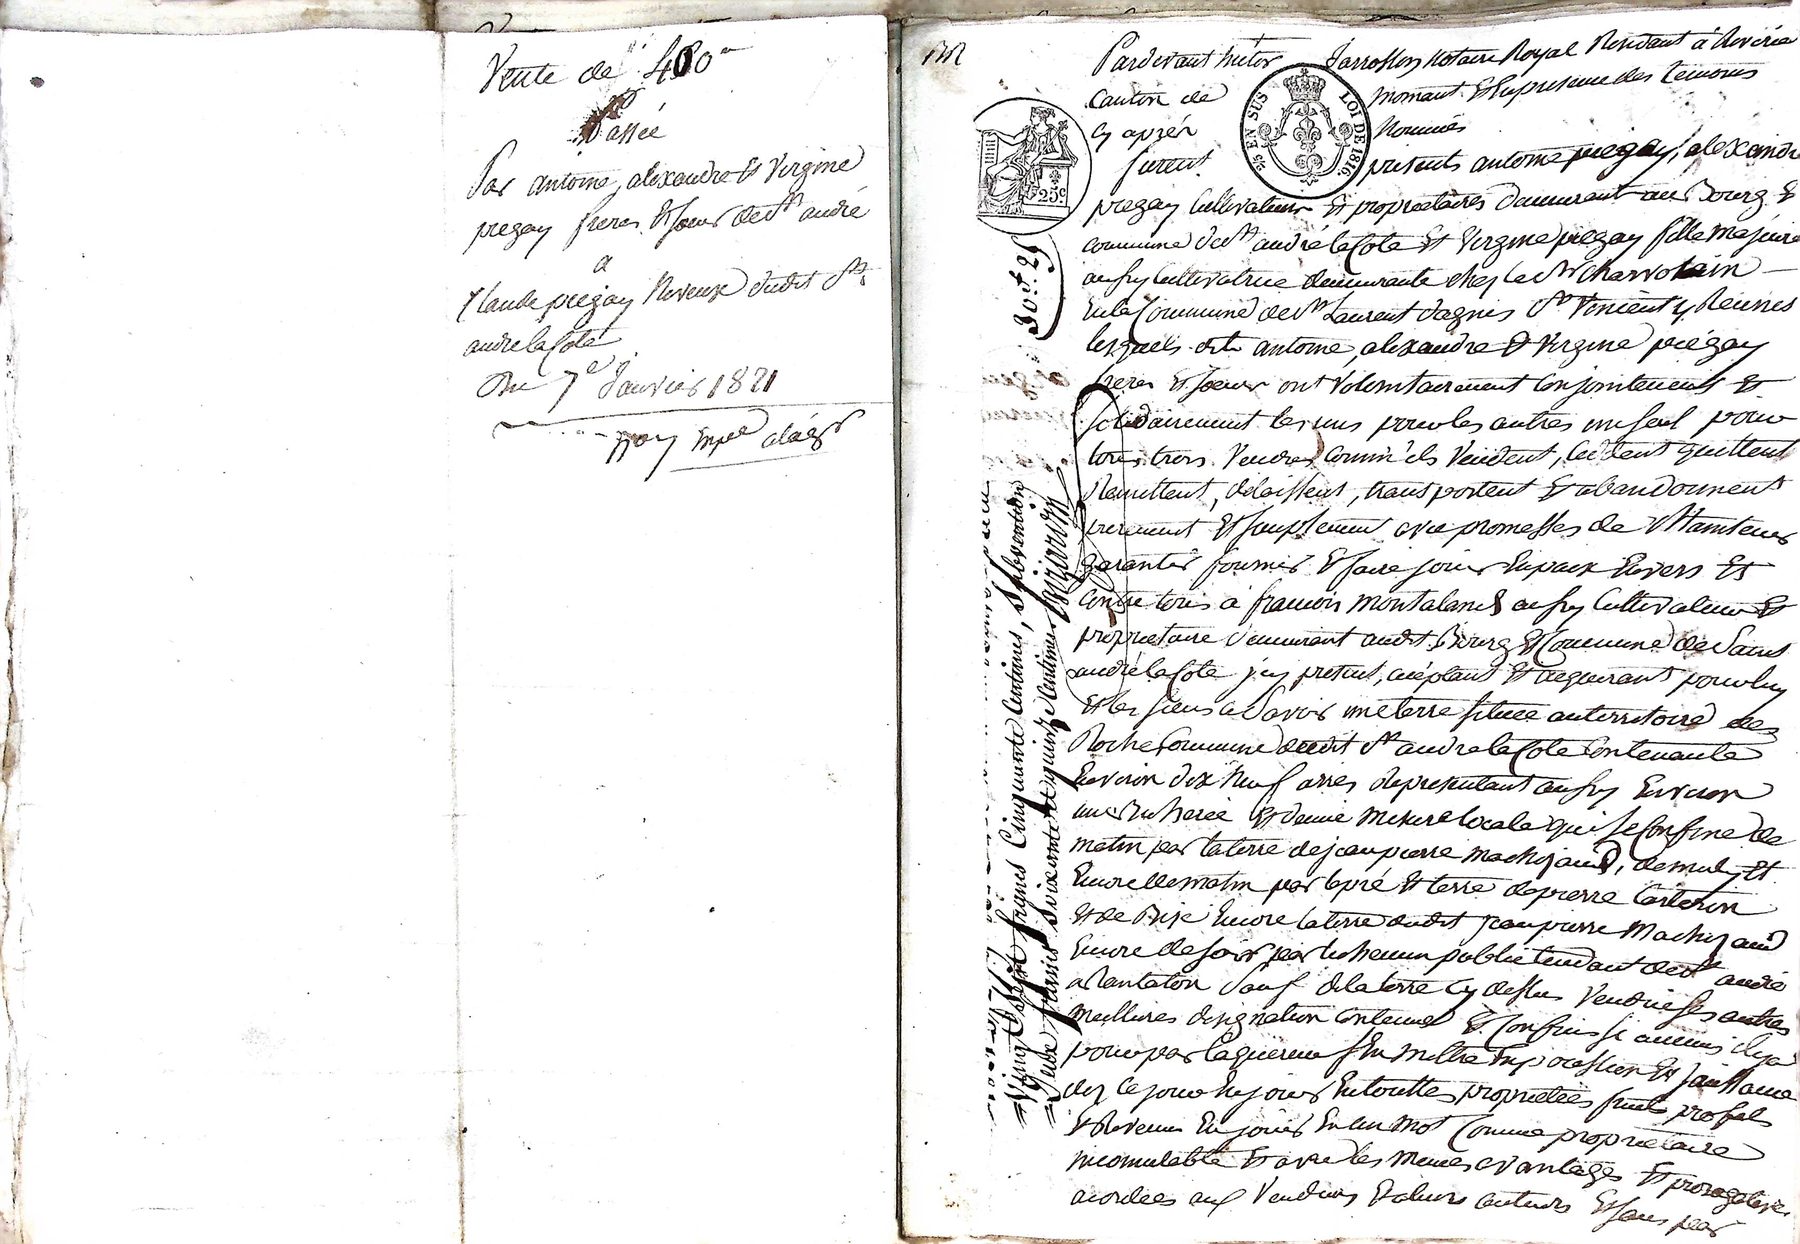 Vente de 400
Passée
Par antoine, alexandre Et Virgine
piegay freres Et soeur de St andré
a
Claude piegay Neveux dudit St
andre la Cote
Du 7e Janvier 1821
Pardevant Me Jarrosson Notaire Royal Residant à Riverie
Canton de Mornant Et En presence des temoins
Cy aprés Nommés
furent presents antoine piegay, alexandre
piegay Cultivateurs Et propriétaires demeurant au Bourg Et
commune de St andré la Cote Et Virgine piegay fille majeure
ausy Cultivatrice demeurante chez le Sr charvolain
En la Commune de St Laurent dagnis St Vincent y Réunies
lesquels dits antoine, alexandre Et Virgine piégay
freres Et soeur ont Volontairement Conjointement Et
solidairement les uns pour les autres un seul pour
tous trois Vendre comm'ils Vendent, Cedent quittent
Remettent, délaissent, transportent Et abandonnent
purement Et simplement avec promesses de Maintenir
garantir fournir Et faire jouir En paix Envers Et
Contre tous à francois Montaland ausy Cultivateur Et
propriétaire demeurant audit Bourg Et Commune de Saint
andré la Cote j'cy present, acéptant Et acquerant pour luy
Et les siens a Savoir une terre située au territoire des
Roche Commune dudit St andre la Cote Contenante
Environ dix Neuf arres representant ausy Environ
une Bicherée Et demie mesure locale qui se Confine de
matin par la terre de jean pierre Machizaud, de midy Et
Encore de matin par le pré Et terre de pierre Carteron
Et de Bise Encore la terre dudit jean pierre Machizaud
Encore de soir par le chemin public tendant de St andré
a Rantaton Sauf de la terre Cy dessus Vendue ses autres
meillures désignation Contenue Et Confins si aucuns il y a
pour par l'aquereur s'En mettre En possession Et jouissance
dez ce jour En jouir En touttes propriétées fruits profits
Et Revenus En jouir En Un Mot Comme propriétaire
incomutable Et avec les Memes avantages Et prérogatives
acordées aux Vendeurs Et a leurs auteurs Et sans par
LOI DE 1816.
25 EN SUS
25c.
30ct. 25
Vingt Sept francs Cinquante Centimes, Subvention
Deux francs Soixante Et quinze Centimes